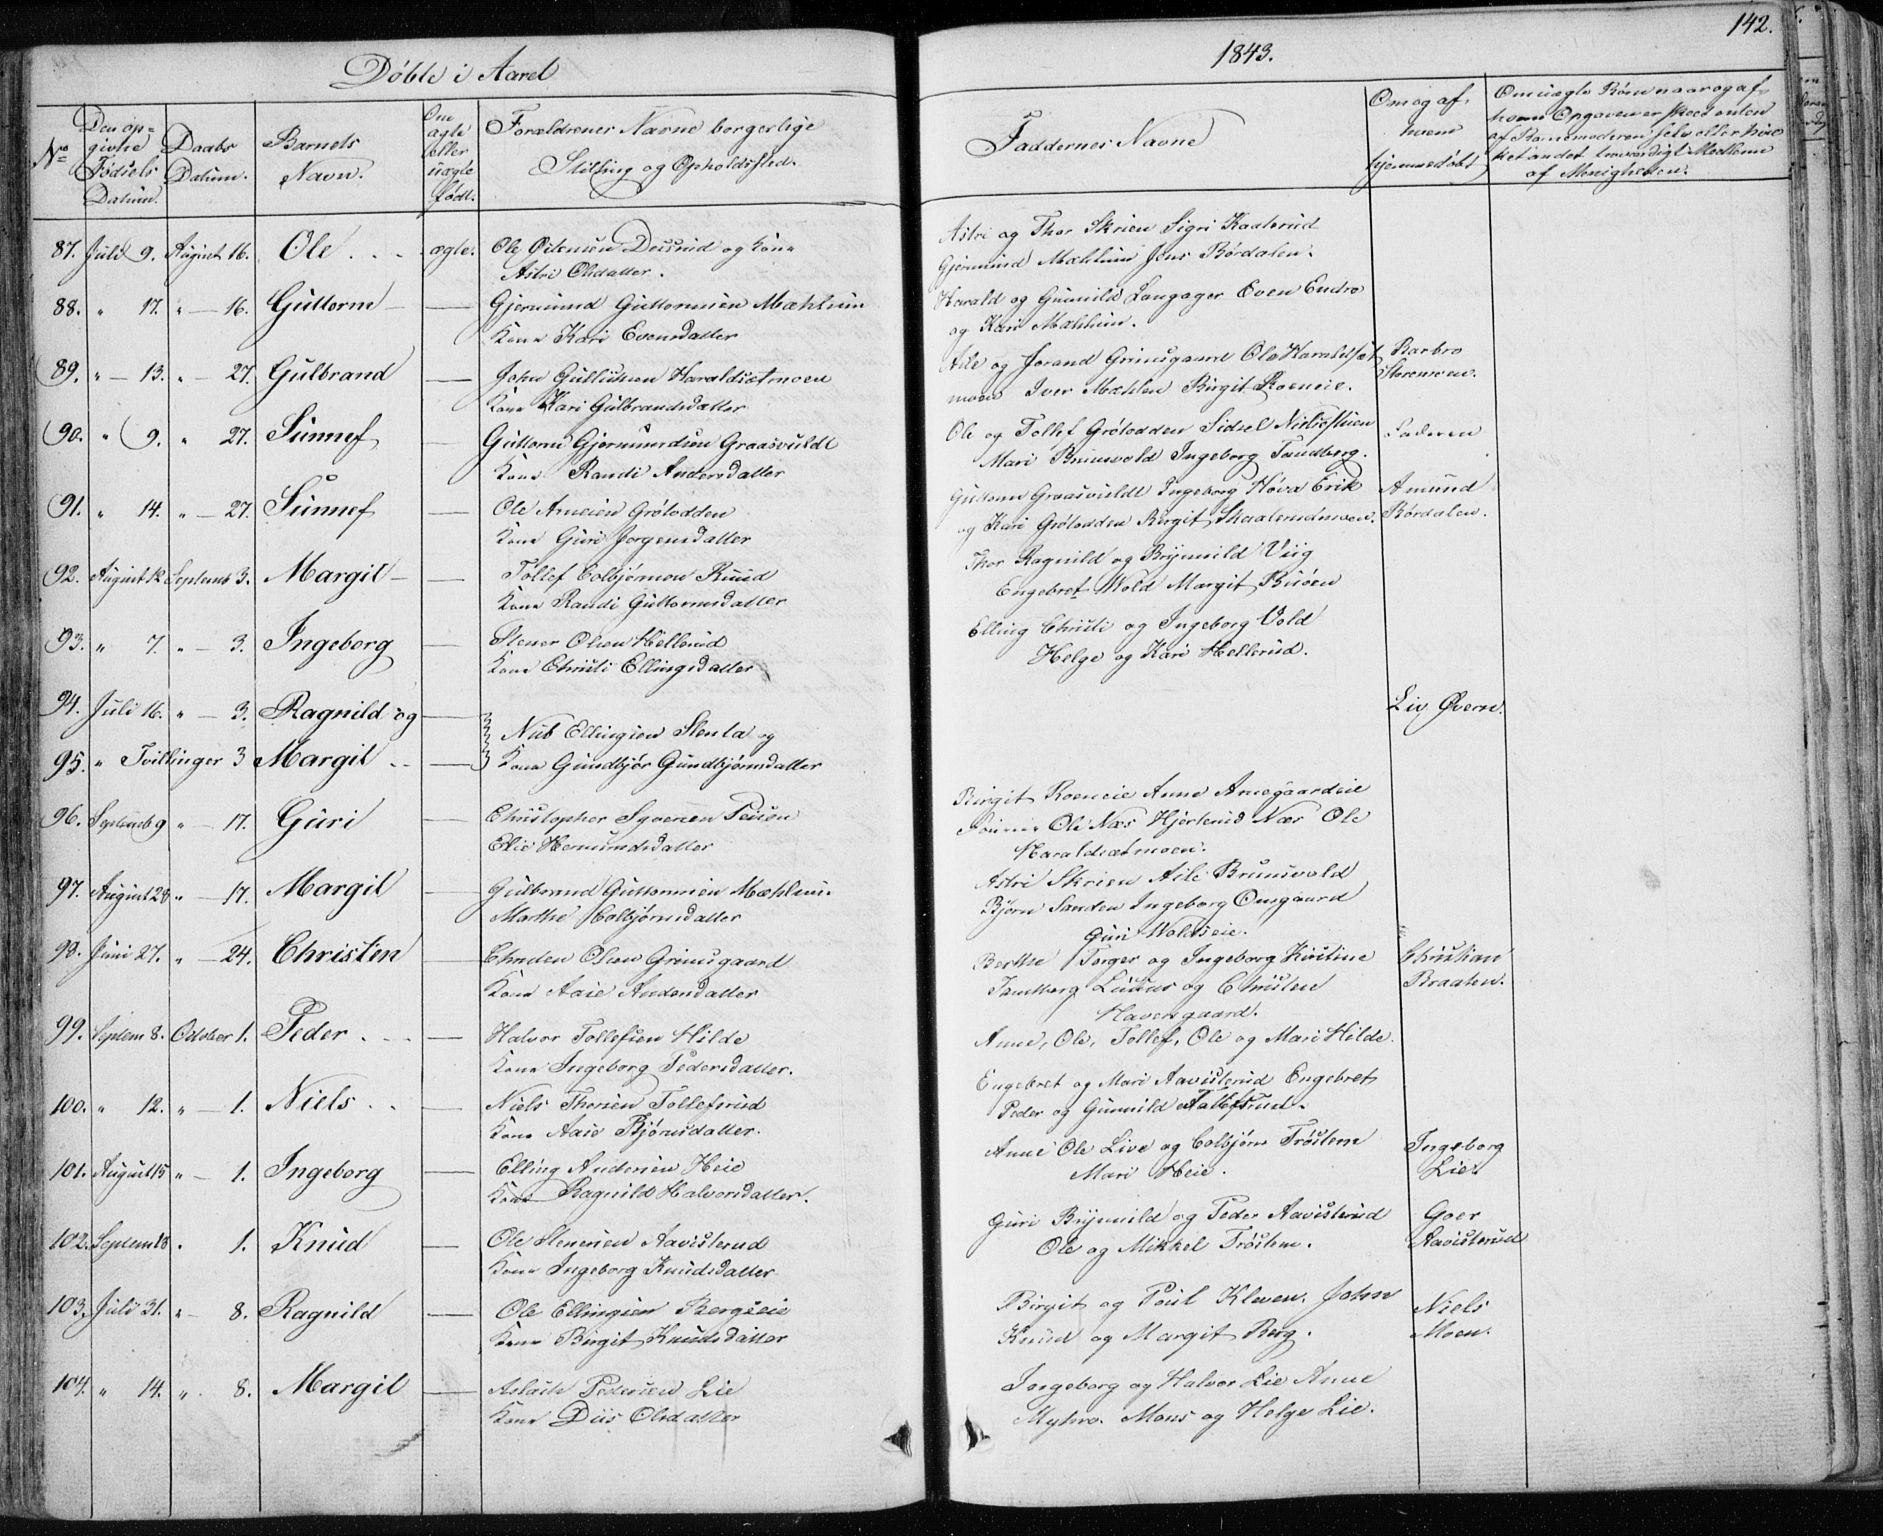 Døbte i Aaret
1843.
142.
No
Den op=
givne
Fødsels
Datum.
Daabs
Datum.
Barnets
Navn.
Om
ægte
eller
uægte
født.
Forældrenes Navne borgerlige
Stilling og Opholdssted.
Faddernes Navne
Om og af
hvem
hjemmedøbt
Om uægte Børn naar og af
hvem Opgaven er skeet enten
af Barnemoderen selv eller hvil
ket andet troværdigt Medlem
af Menigheden.
87. Juli 9. August 16. Ole . . . ægte. Ole Ostensen Deisrud og Kone
Astri Olsdatter.
Astri og Thor Skrien Sigri Kaalerud
Gjermund Mæhlum Jens Børdalen.
88. " 17. " — 16. Guttorm — Gjermund Guttormsen Mæhlum
Kone Kari Evensdatter
Harald og Gunnild Langager Even Endro
og Kari Mæhlum.
89. " — 13. " — 27. Gulbrand — John Gulliksen Haraldsætmoen
Kone Kari Gulbrandsdatter
Aile og Jorand Grimsgaard Ole Haraldsæt
moen Iver Mæhlen Birgit Roeneie.
Barbro
Storemoen.
90. " 9. " 27. Sünnef — Guttorm Gjermundsen Graasvuldt
Kone Randi Andersdatter
Ole og Tollef Grøtodden Sidsel
Mari Brunsvold Ingeborg Sandberg.
Faderen
91. " 14. " — 27. Sünnef — Ole Arnesen Grøtodden
Kone Guri Jorgensdatter
Guttorm Graasvuldt Ingeborg Høva Erik
og Kari Grøtodden Birgit Skaalerudmoen.
Amund
Børdalen.
92. August 12 Septemb 3. Margit — Tollef Colbjørnsen Ruud
Kone Randi Guttormsdatter
Thor Ragnild og Brynild Viig
Engebret Wold Margit Buøen
93. " 7. " — 3. Ingeborg — Stener Olsen Hellerud
Kone Christi Ellingsdatter
Elling Christi og Ingeborg Vold
Helge og Kari Hellerud.
94. Juli 16. " — 3. Ragnild og —
95. " Tvillinger 3 Margit . . — Nub Ellingsen Stenla og
Kone Gundbjør Gundbjørnsdatter
Liv Øvern.
96. Septemb 9 " — 17. Guri — Christopher Syversen
Elie Hermundsdatter
Birgit Roeneie Anne Arnegaardeie
Ole Næs Hjerterud Nær Ole
Haraldsætmoen.
97. August 28 " — 17. Margit — Gulbrand Guttormsen Mæhlum
Marthe Colbjørnsdatter
Astri Skrien Aile Brunsvold
Bjørn Sanden Ingeborg Omgaard
Guri Woldseie.
98. Juni 27. " — 24. Christen — Christen Olsen Grimsgaard
Kone Aase Andersdatter
Berthe Torger og Ingeborg Kristine
Sandberg og Christen
Havengaard.
Christian
Braaten.
99. Septem 8. October 1. Peder . . . — Halvor Tollefsen Hilde
Kone Ingeborg Pedersdatter.
Anne, Ole, Tollef, Ole og Mari Hilde.
100. " 12. " — 1. Niels . . — Niels Thorsen Tollefsrud
Kone Aase Bjørnsdatter.
Engebret og Mari Aavisterud Engebret
Peder og Gunnild Tollefsrud.
101. August 15 " — 1. Ingeborg — Elling Andersen Heie
Kone Ragnild Halvorsdatter.
Anne Ole Live og Colbjørn Trøstem
Mari Heie.
Ingeborg
Lie.
102. Septem 18 . 1. Knud — Ole Stenersen Aavisterud
Kone Ingeborg Knudsdatter.
Guri Brynild og Peder Aavisterud
Ole og Mikkel Trøstem.
Goer
Aavisterud
103. Juli 31. " 8. Ragnild — Ole Ellingsen Bergseie
Kone Birgit Knudsdatter
Birgit og Poul Kleven. John
Knud og Margit Berg.
Niels
Moen.
104. " 14. " . 8. Margit — Aslach Pedersen Lie
Kone Diis Olsdatter
Ingeborg og Halvor Lie Anne
Myhro. Mons og Helge Lie.